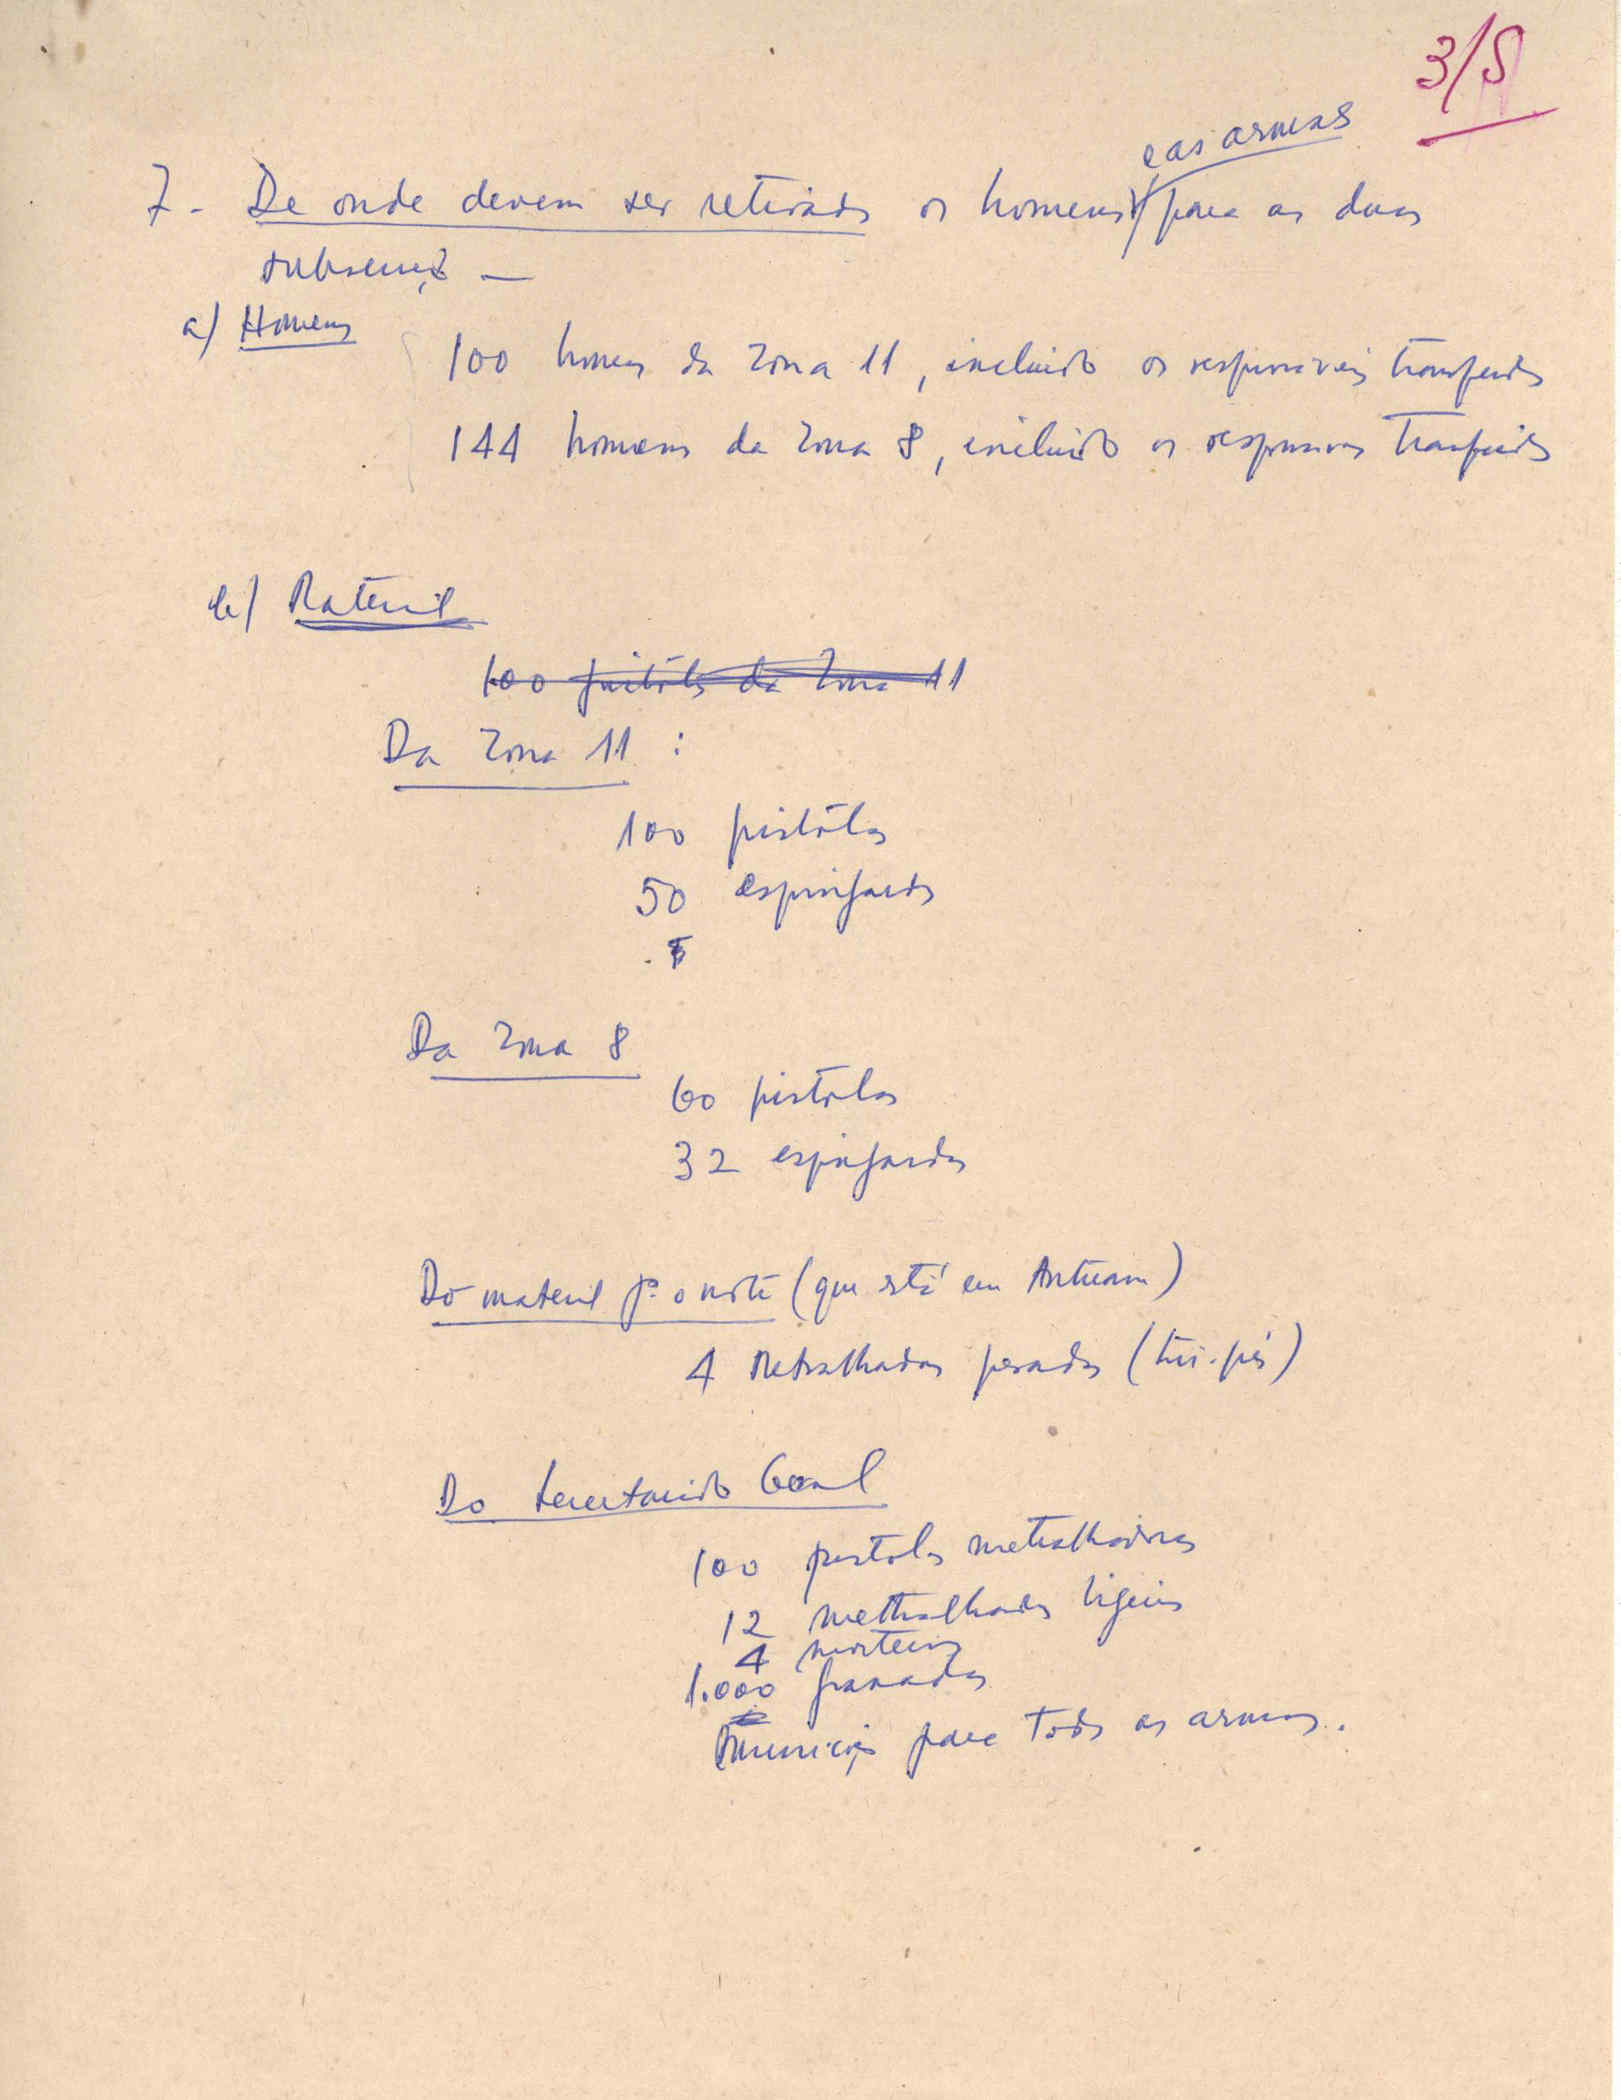 3/5
e as armas
7 - De onde devem ser retirados os homens para as duas
a) Homens
100 homens da Zona 11, incluindo os responsáveis transferidos
144 homens da Zona 8, incluindo os responsaveis transferidos
b) Material
100 pistolas da Zona 11
Da Zona 11 :
100 pistólas
50 espingardas
Da Zona 8
60 pistolas
32 espingardas
Do material pª o norte (que está em)
4 Metralhadoras pesadas (tri-pés)
Do Secretariado Geral
100 pistolas metralhadoras
12 metralhadoras ligeiras
4 morteiros
1.000 granadas
Munições para todas as armas.